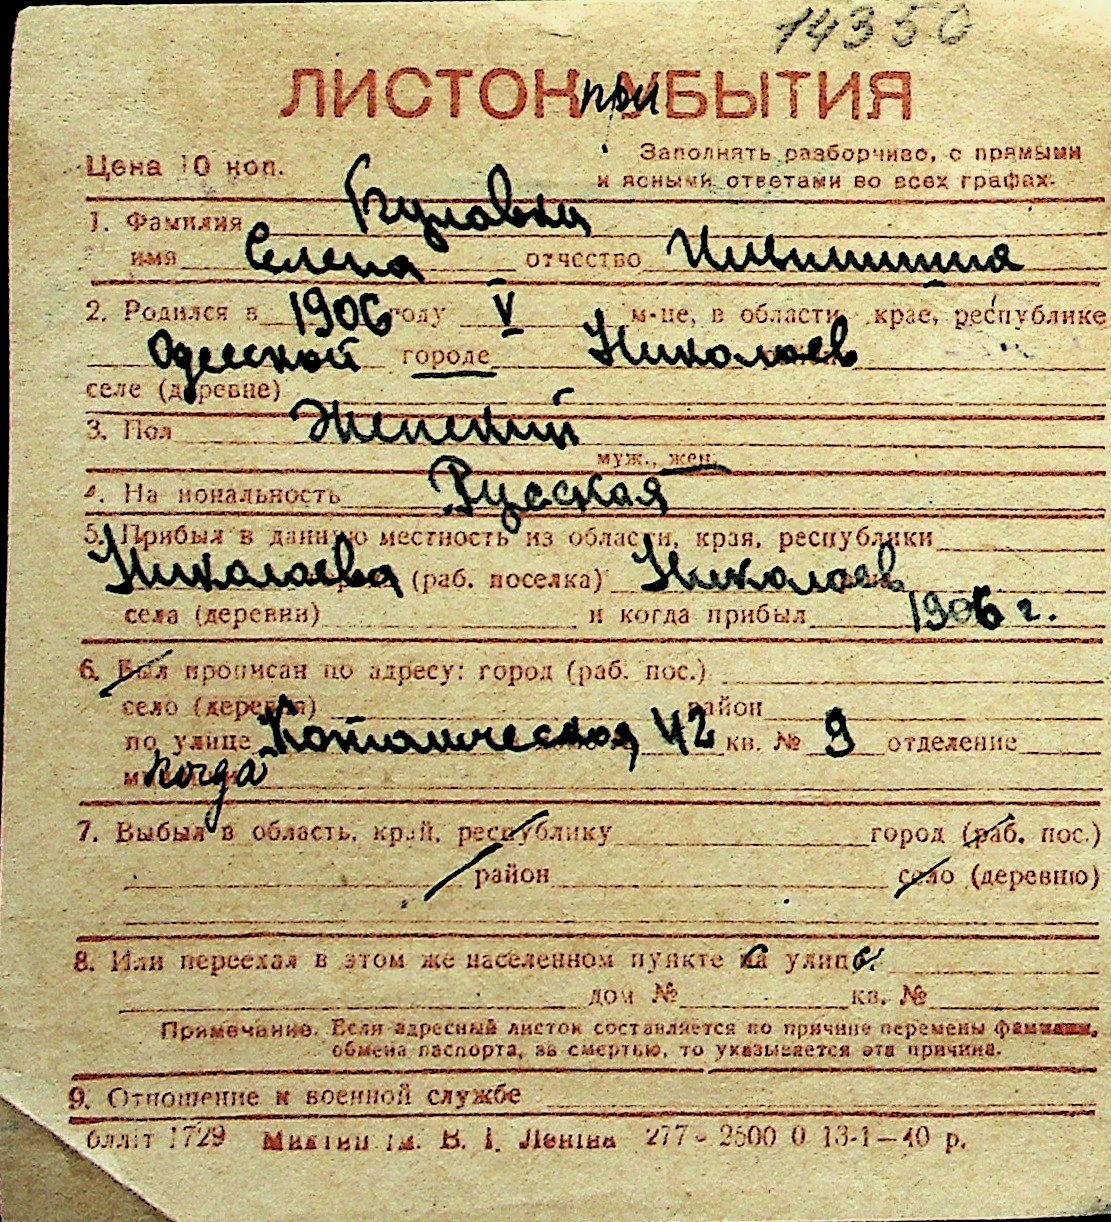 14350
ЛИСТОК при УБЫТИЯ
Цена 10 коп.
Заполнять разборчиво, с прямыми
и ясными ответами во всех графах.
1. Фамилия
имя Елена отчество
2. Родился в 1906 году V м-це, в области, крае, республике
Одесской городе Николаев
селе (деревне)
3. Пол Женский
муж., жен.
4. На иональность Русская
5. Прибыл в данную местность из области, края, республики
Николаева (раб. поселка) Николаев
села (деревни) и когда прибыл 1906 г.
6. Был прописан по адресу: город (раб. пос.)
село (деревня) район
по улице 42 кв. № 9 отделение
когда
7. Выбыл в область, край, республику город (раб. пос.)
район село (деревню)
8. Или переехал в этом же населенном пункте на улицу
дом № кв. №
Примечание. Если адресный листок составляется по причине перемены фамилии,
обмена паспорта, за смертью, то указывается эта причина.
9. Отношение к военной службе
1729 В. І. Леніна 277 - 2500 0 13-1-40 р.